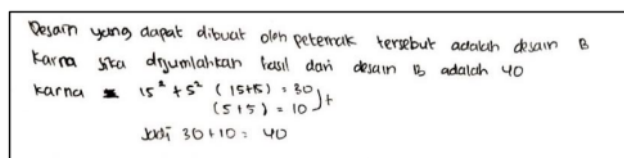 Desain yang dapat dibuat oleh peternak tersebut adalah desain B
Karna jika dijumlahkan hasil dari desain B adalah 40
karna 15² + 5² (15+15) = 30
(5+5) = 10 ) +
Jadi 30+10 = 40